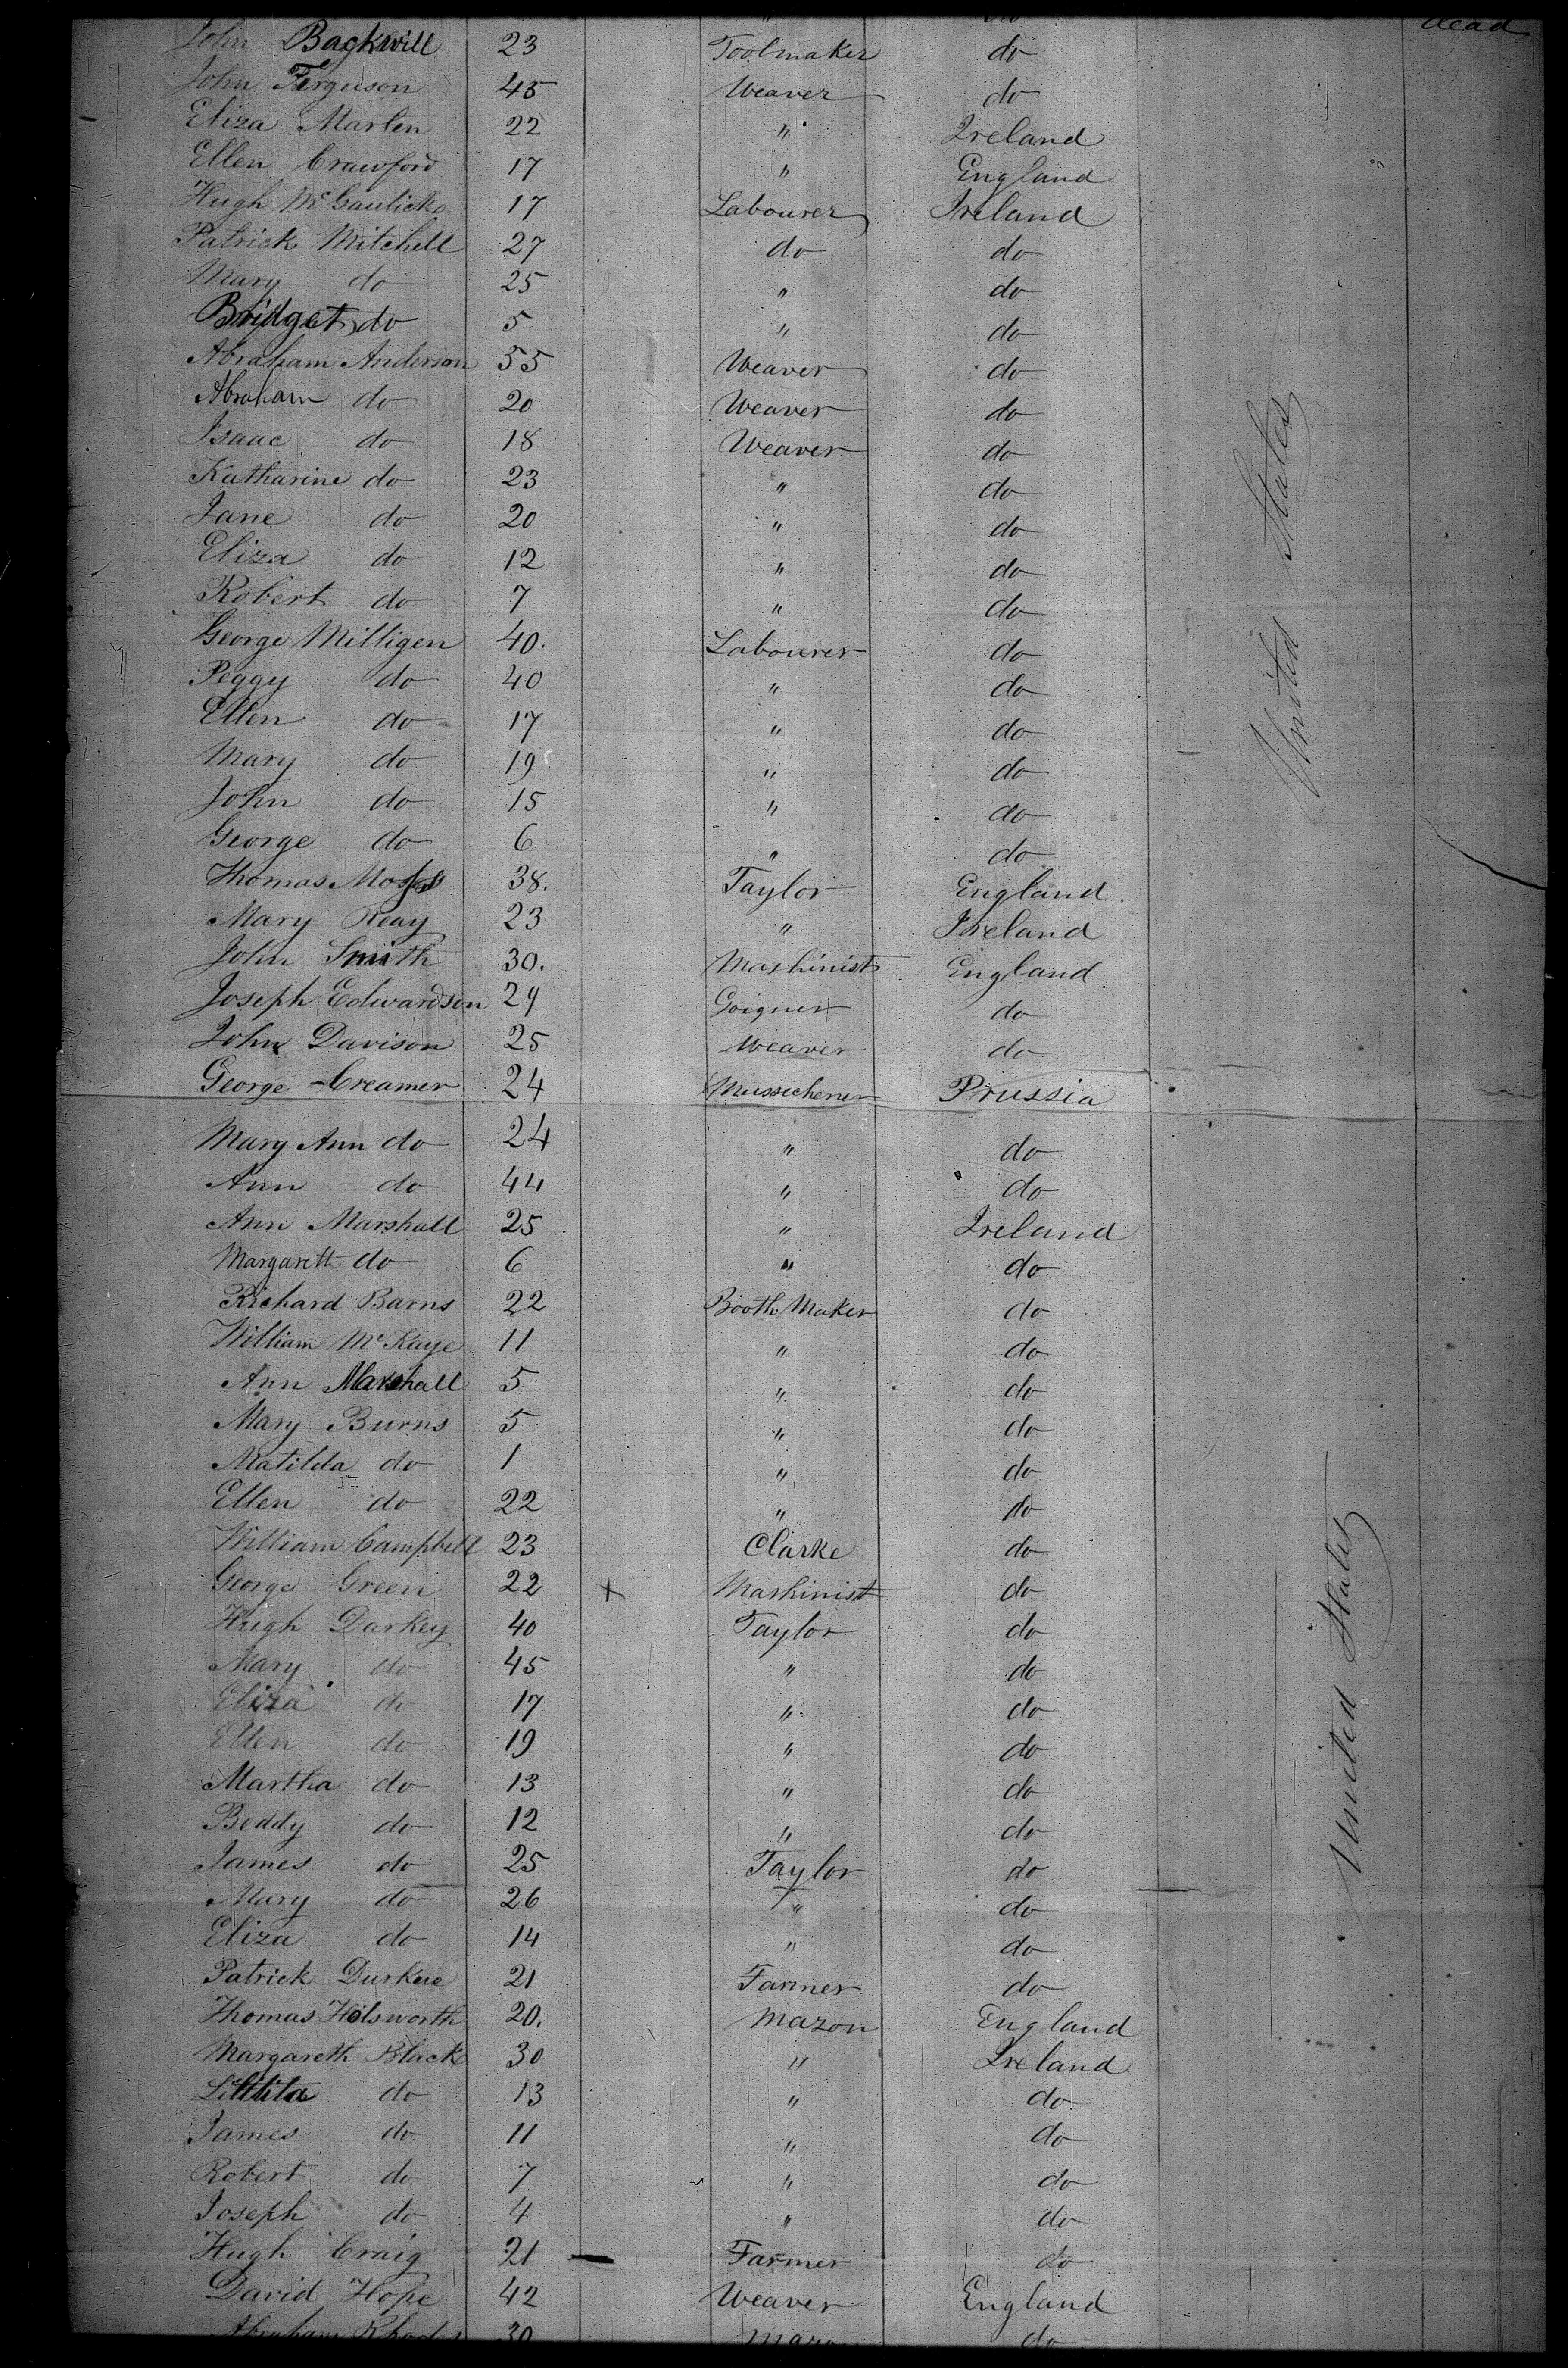 dead
John Backwill 23 Toolmaker do
John Ferguson 45 Weaver do
Eliza Marten 22 " Ireland
Ellen Crawford 17 " England
Hugh McGaulick 17 Labourer Ireland
Patrick Mitchell 27 do do
Mary do 25 " do
Bridget do 5 " do
Abraham Anderson 55 Weaver do
Abraham do 20 Weaver do
Isaac do 18 Weaver do
Katharine do 23 " do
Jane do 20 " do
Eliza do 12 " do
Robert do 7 " do
George Milligen 40. Labourer do
Peggy do 40 " do
Ellen do 17 " do
Mary do 19 " do
John do 15 " do
George do 6 " do
United States
Thomas 38. Taylor England
Mary Reay 23 " Ireland
John Smith 30. Mashinist England
Joseph Edwardson 29 do
John Davison 25 Weaver do
George Creamer 24 Prussia
Mary Ann do 24 " do
Ann do 44 " do
Ann Marshall 25 " Ireland
Margarett do 6 " do
Richard Burns 22 Booth Maker do
William McKaye 11 " do
Ann Marshall 5 " do
Mary Burns 5 " do
Matilda do 1 " do
Ellen do 22 " do
William Campbell 23 Clarke do
George Green 22 x Mashinist do
Hugh Darkey 40 Taylor do
Mary do 45 " do
Eliza do 17 " do
Ellen do 19 " do
Martha do 13 " do
Beddy do 12 " do
James do 25 Taylor do
Mary do 26 " do
Eliza do 14 " do
United States
Patrick Durkee 21 Farmer do
Thomas Holsworth 20. Mazon England
Margareth Black 30 " Ireland
do 13 " do
James do 11 " do
Robert do 7 " do
Joseph do 4 " do
Hugh Craig 21 Farmer do
David Hope 42 Weaver England
Abraham Rhodes 30 do